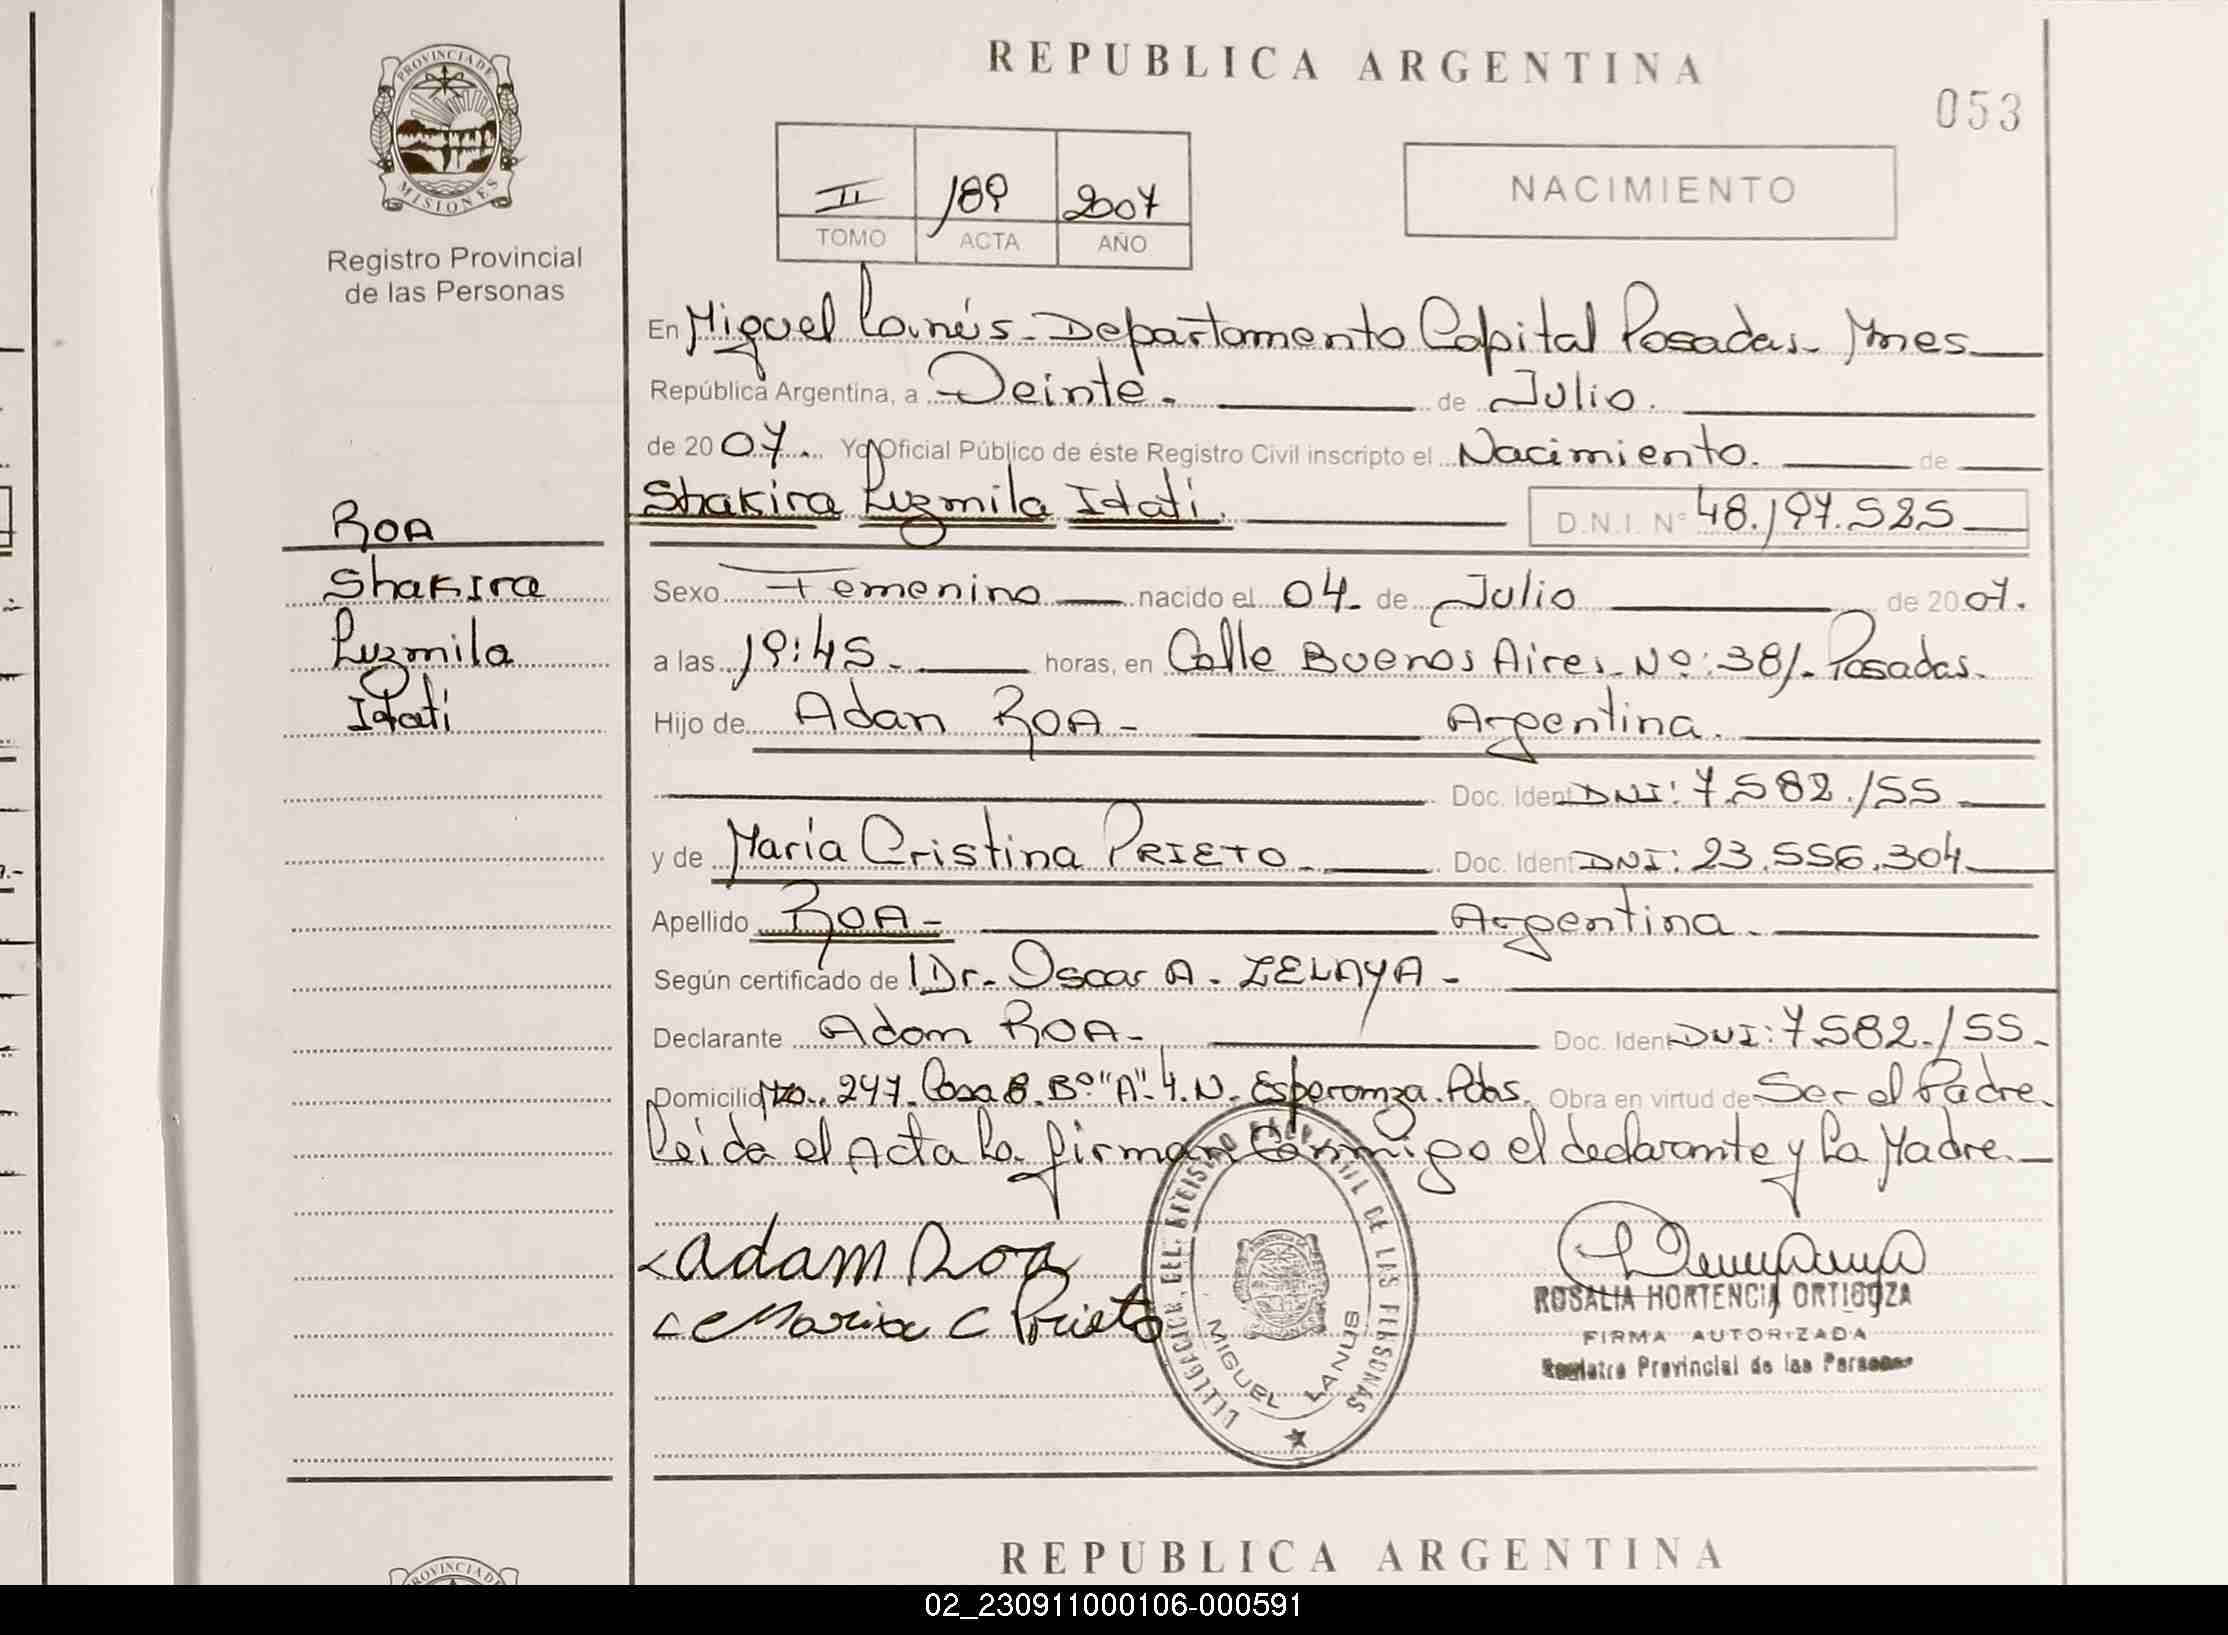 REPUBLICA ARGENTINA
053
PROVINCIA DE
MISIONES
Registro Provincial
de las Personas
II 189 2007
TOMO ACTA AÑO
NACIMIENTO
En Miguel Lanús - Departamento Capital Posadas - Mnes
República Argentina, a Veinte - de Julio.
de 2007. Yo Oficial Público de éste Registro Civil inscripto el Nacimiento. de
Shakira Luzmila Itatí. D.N.I. Nº 48.197.525
ROA
Shakira
Luzmila
Itatí
Sexo Femenino nacido el 04. de Julio de 2007.
a las 19:45. horas, en Calle Buenos Aires. Nº: 381. Posadas.
Hijo de Adan ROA - Argentina.
Doc. Ident DNI: 7.582.155
y de María Cristina PRIETO - Doc. Ident DNI: 23.556.304
Apellido ROA - Argentina.
Según certificado de Dr. Oscar A. ZELAYA -
Declarante Adam ROA - Doc. Ident DNI: 7.582.155.
Domicilio Mzo. 247. Casa 8. Bº "A" 4. N. Esperanza. Pdas. Obra en virtud de Ser el Padre.
Leida el Acta la firman Conmigo el declarante y la Madre.
adam Roa
Maria C Prieto
REGISTRO DE LAS PERSONAS
MIGUEL LANUS
ROSALIA HORTENCIA ORTIGOZA
FIRMA AUTORIZADA
Registro Provincial de las Personas
REPUBLICA ARGENTINA
02_230911000106-000591